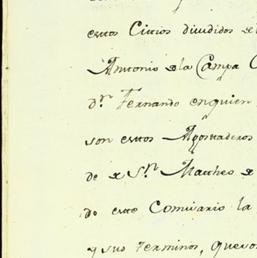 estos Citios divididos de
Antonio de la Campa C
Dⁿ. Fernando en quien
son estos Agostaderos
de Sⁿ. Matheo
do este Comisario la
y sus Terminos, que vo